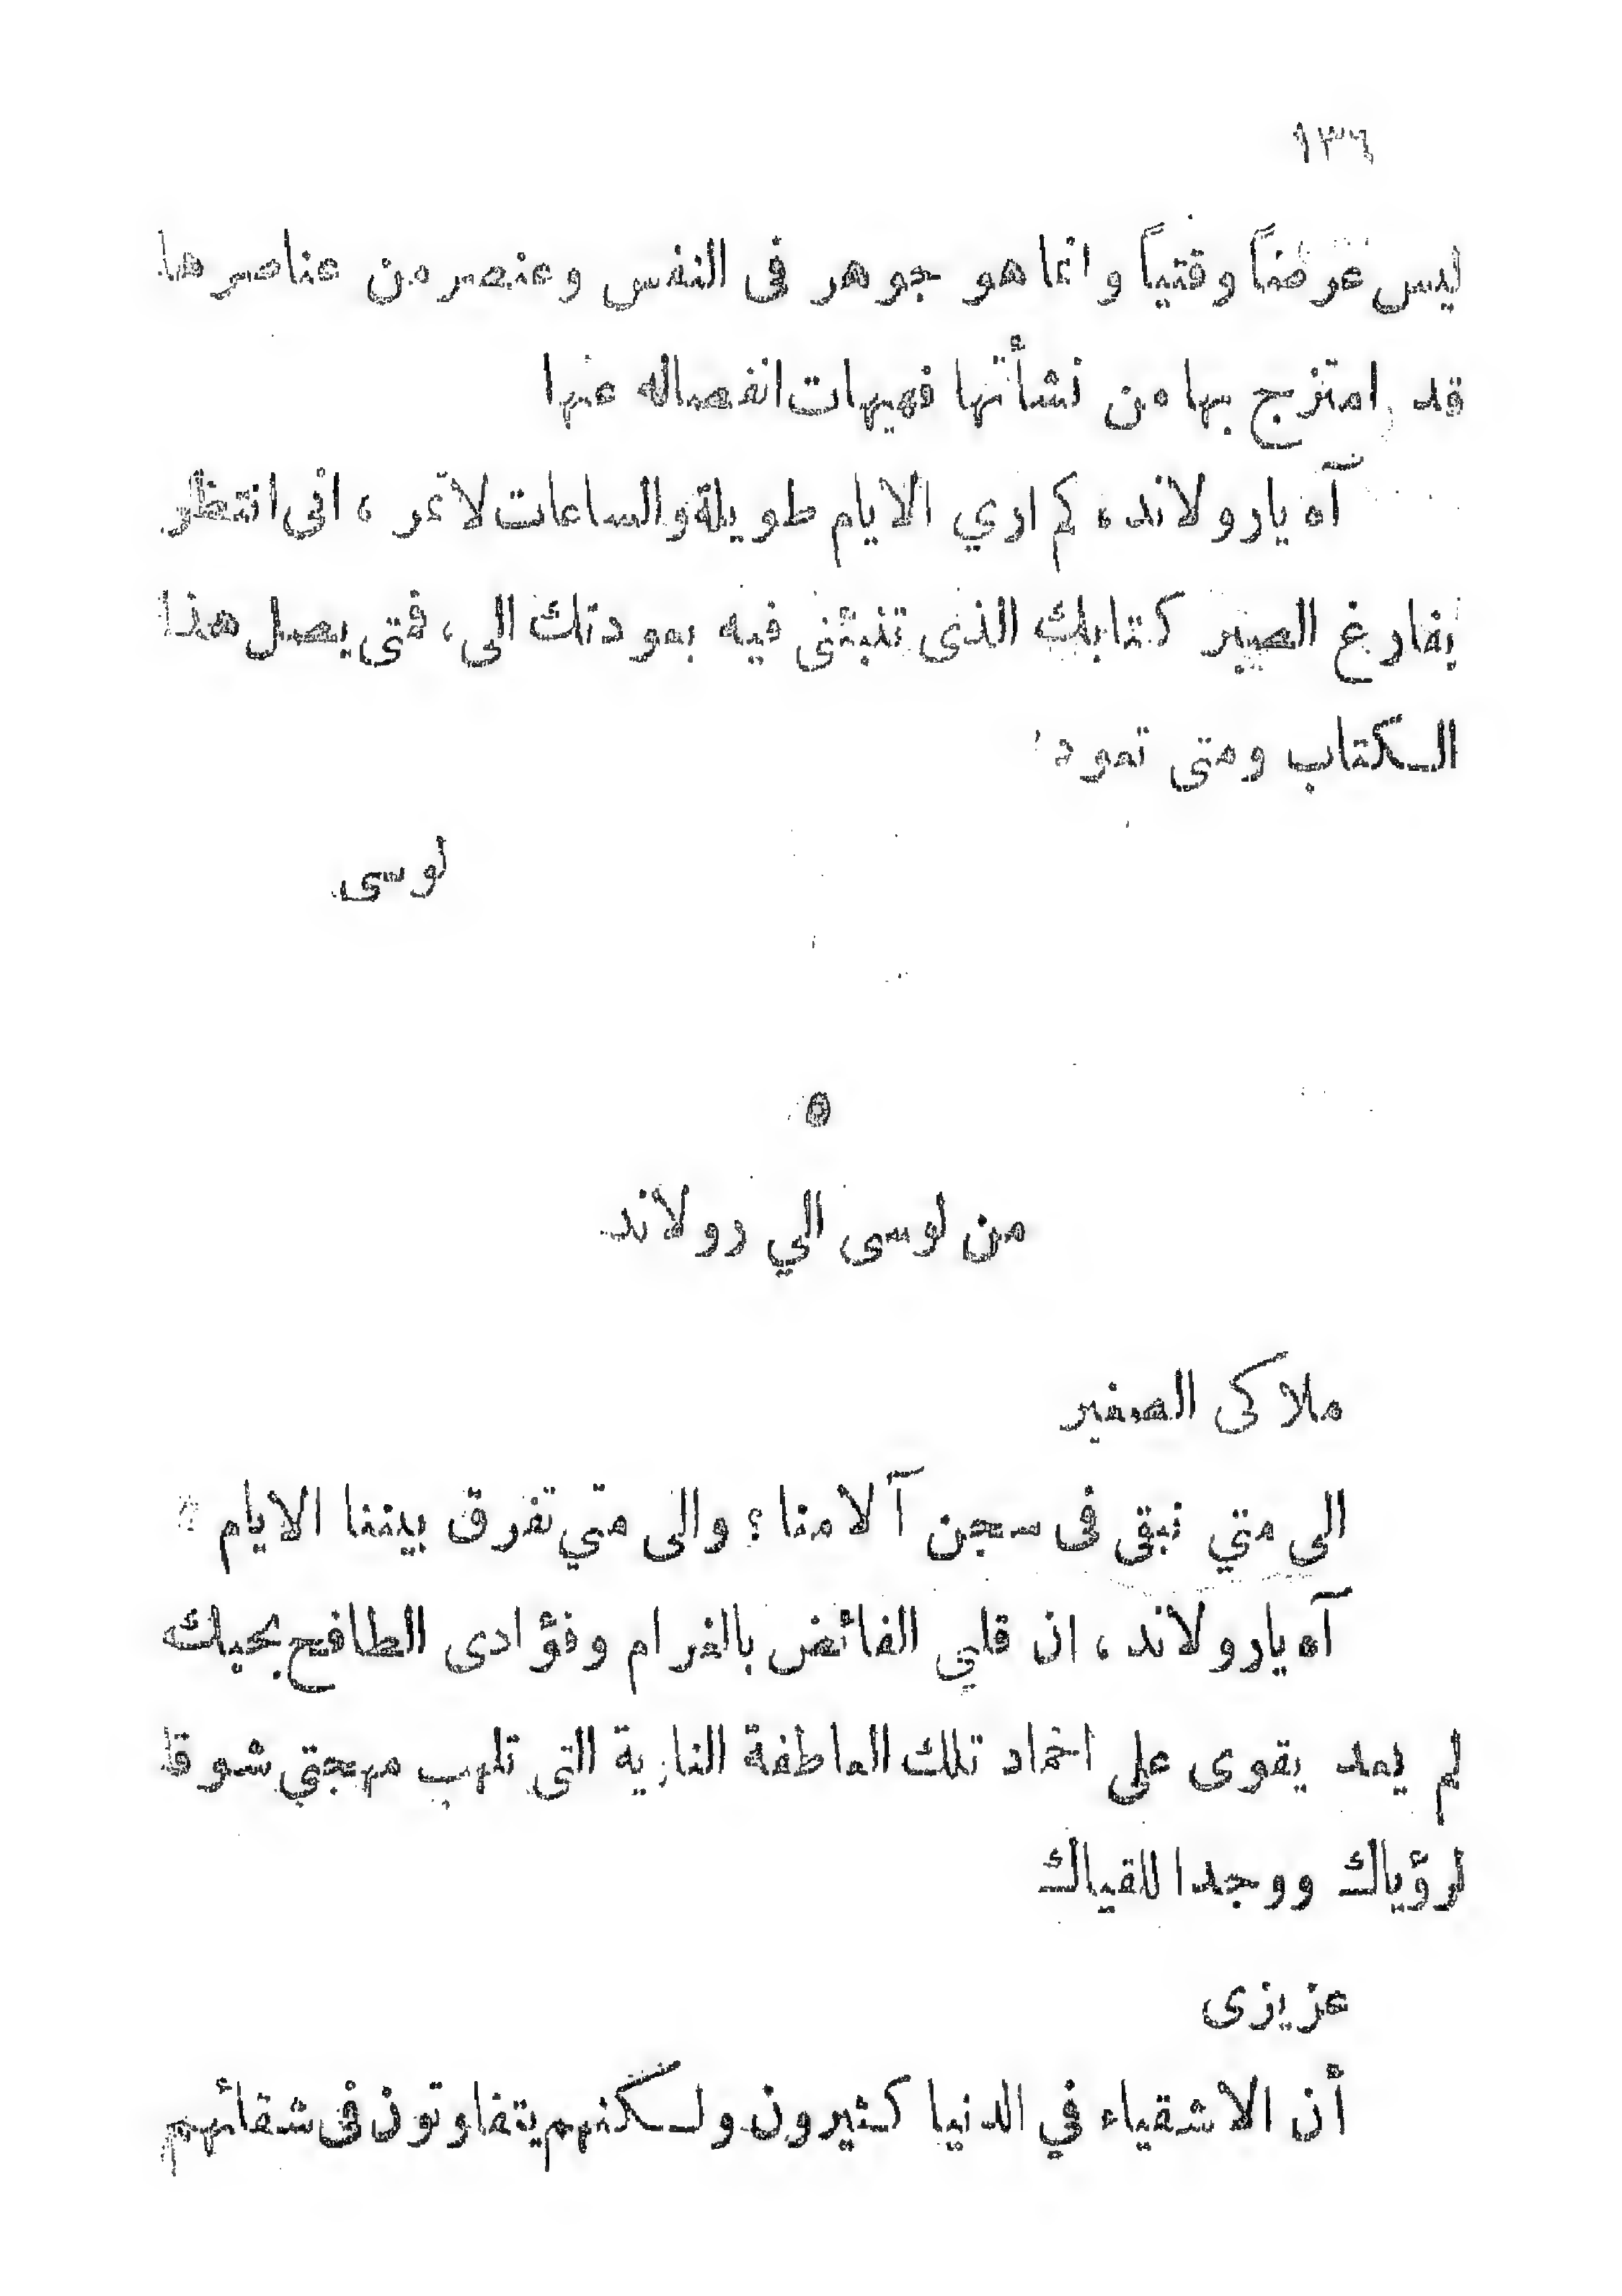 ١٣٦
ليس عرضاً وقتياً وانما هو جوهر فى النفس وعنصر من عناصرها
قد امتزج بها من نشأتها فهيهات انفصاله عنها
آه يارولاند، كم اري الايام طويلة والساعات لا تمر، انى انتظر
بفارغ الصبر كتابك الذى تنبئنى فيه بعودتك الى، فمتى يصل هذا
الكتاب ومتى تعود؟
لوسى
٥
من لوسى الي رولاند
ملاكى الصغير
الى متي نبقى فى سجن آلامنا؟ والى متي تفرق بيننا الايام؟
آه يارولاند، ان قلبي الفائض بالغرام وفؤادى الطافح بحبك
لم يعد يقوى على اخماد تلك العاطفة النارية التى تلهب مهجتي شوقا
لرؤياك ووجدا للقياك
عزيزى
أن الاشقياء في الدنيا كثيرون ولكنهم يتفاوتون فى شقائهم